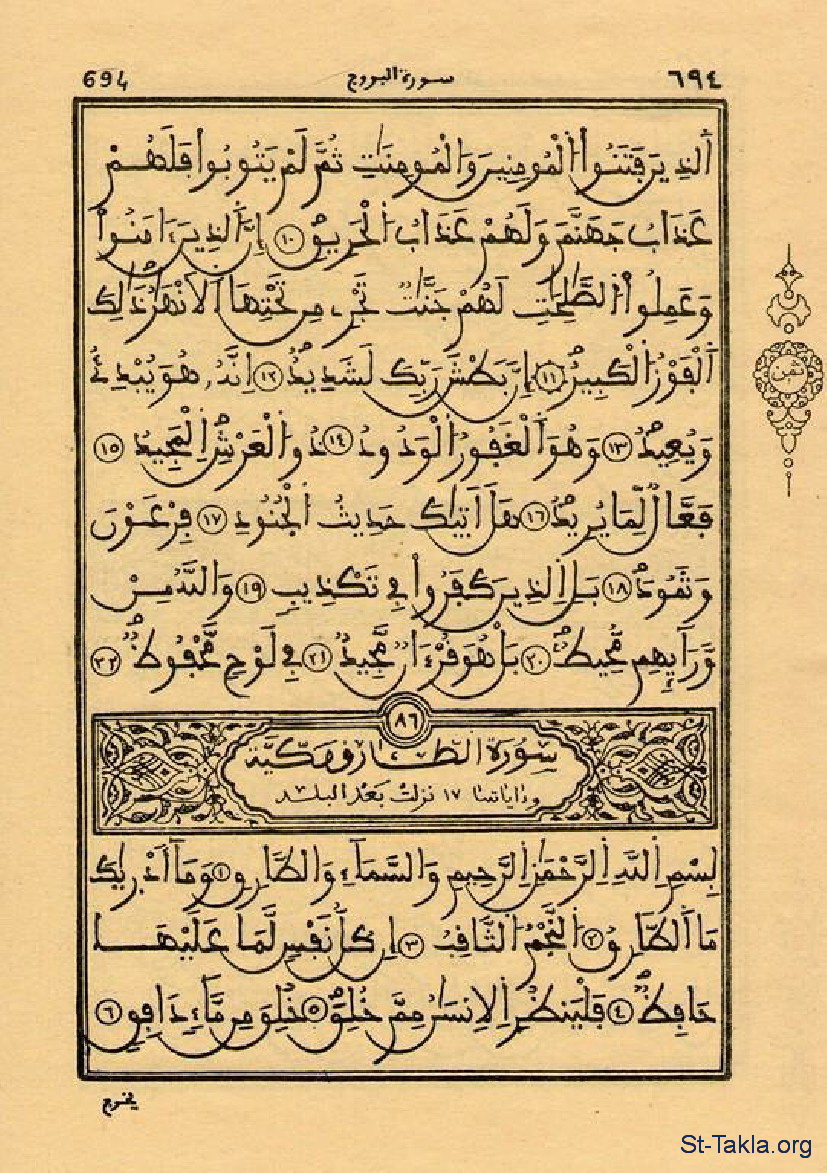 694 سورة البروج ٦٩٤
اَ۬لذِينَ فَتَنُواْ اُ۬لْمُومِنِينَ وَالْمُومِنَٰتِ ثُمَّ لَمْ يَتُوبُواْ فَلَهُمْ
عَذَابُ جَهَنَّمَ وَلَهُمْ عَذَابُ اُ۬لْحَرِيقِ ١٠ إِنَّ اَ۬لذِينَ ءَامَنُواْ
وَعَمِلُواْ اُ۬لصَّٰلِحَٰتِ لَهُمْ جَنَّٰتٞ تَجْرِے مِن تَحْتِهَا اَ۬لَانْهَٰرُ ذَٰلِكَ
ثمن
اَ۬لْفَوْزُ اُ۬لْكَبِيرُ ١١ إِنَّ بَطْشَ رَبِّكَ لَشَدِيدٌ ١٢ اِنَّهُۥ هُوَ يُبْدِئُ
وَيُعِيدُ ١٣ وَهُوَ اَ۬لْغَفُورُ اُ۬لْوَدُودُ ١٤ ذُو اُ۬لْعَرْشِ اِ۬لْمَجِيدُ ١٥
فَعَّالٞ لِّمَا يُرِيدُ ١٦ هَلَ اَتٰ۪يكَ حَدِيثُ اُ۬لْجُنُودِ ١٧ فِرْعَوْنَ
وَثَمُودَ ١٨ بَلِ اِ۬لذِينَ كَفَرُواْ فِے تَكْذِيبٖ ١٩ وَاللَّهُ مِنْ
وَّرَآئِهِم مُّحِيطُۢ ٢٠ بَلْ هُوَ قُرْءَانٞ مَّجِيدٞ ٢١ فِے لَوْحٖ مَّحْفُوظٞ ٢٢
٨٦
سُورَةُ الطَّارِقِ مَكِّيَّة
وءاياتها ١٧ نزلت بعد البلد
بِسْمِ اِ۬للَّهِ اِ۬لرَّحْمَٰنِ اِ۬لرَّحِيمِ وَالسَّمَآءِ وَالطَّارِقِ ١ وَمَآ أَدْر۪يٰكَ
مَا اَ۬لطَّارِقُ ٢ اُ۬لنَّجْمُ اُ۬لثَّاقِبُ ٣ إِن كُلُّ نَفْسٖ لَّمَا عَلَيْهَا
حَافِظٞ ٤ فَلْيَنظُرِ اِ۬لِانسَٰنُ مِمَّ خُلِقَ ٥ خُلِقَ مِن مَّآءٖ دَافِقٖ ٦
يخرج
St-Takla.org